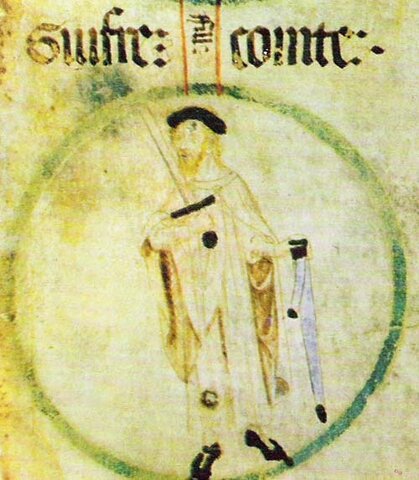 Guifre: comte:·